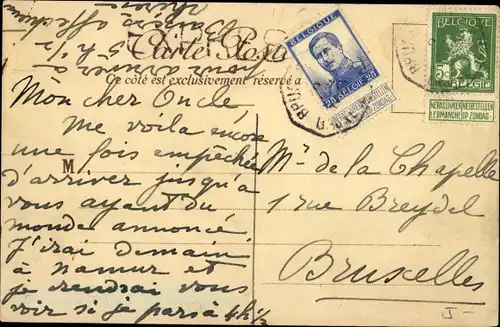 Carte Postale
Ce côté est exclusivement réservé a
BELGIQUE
25 BELGIË 25
BELGIQUE
5 BELGIË 5
NIET AFLEVEREN OP ZONDAG
NE PAS LIVRER LE DIMANCHE
Mon cher Oncle,
me voila encore
une fois empêché
d'arriver jusqu'à
vous ayant du
monde annoncé.
J'irai demain
à Namur et
je viendrai vous
voir si je pars à 4h½
pour arriver à
5h½
Baisers affectueux
M
Mr de la Chapelle
1 rue Breydel
Bruxelles